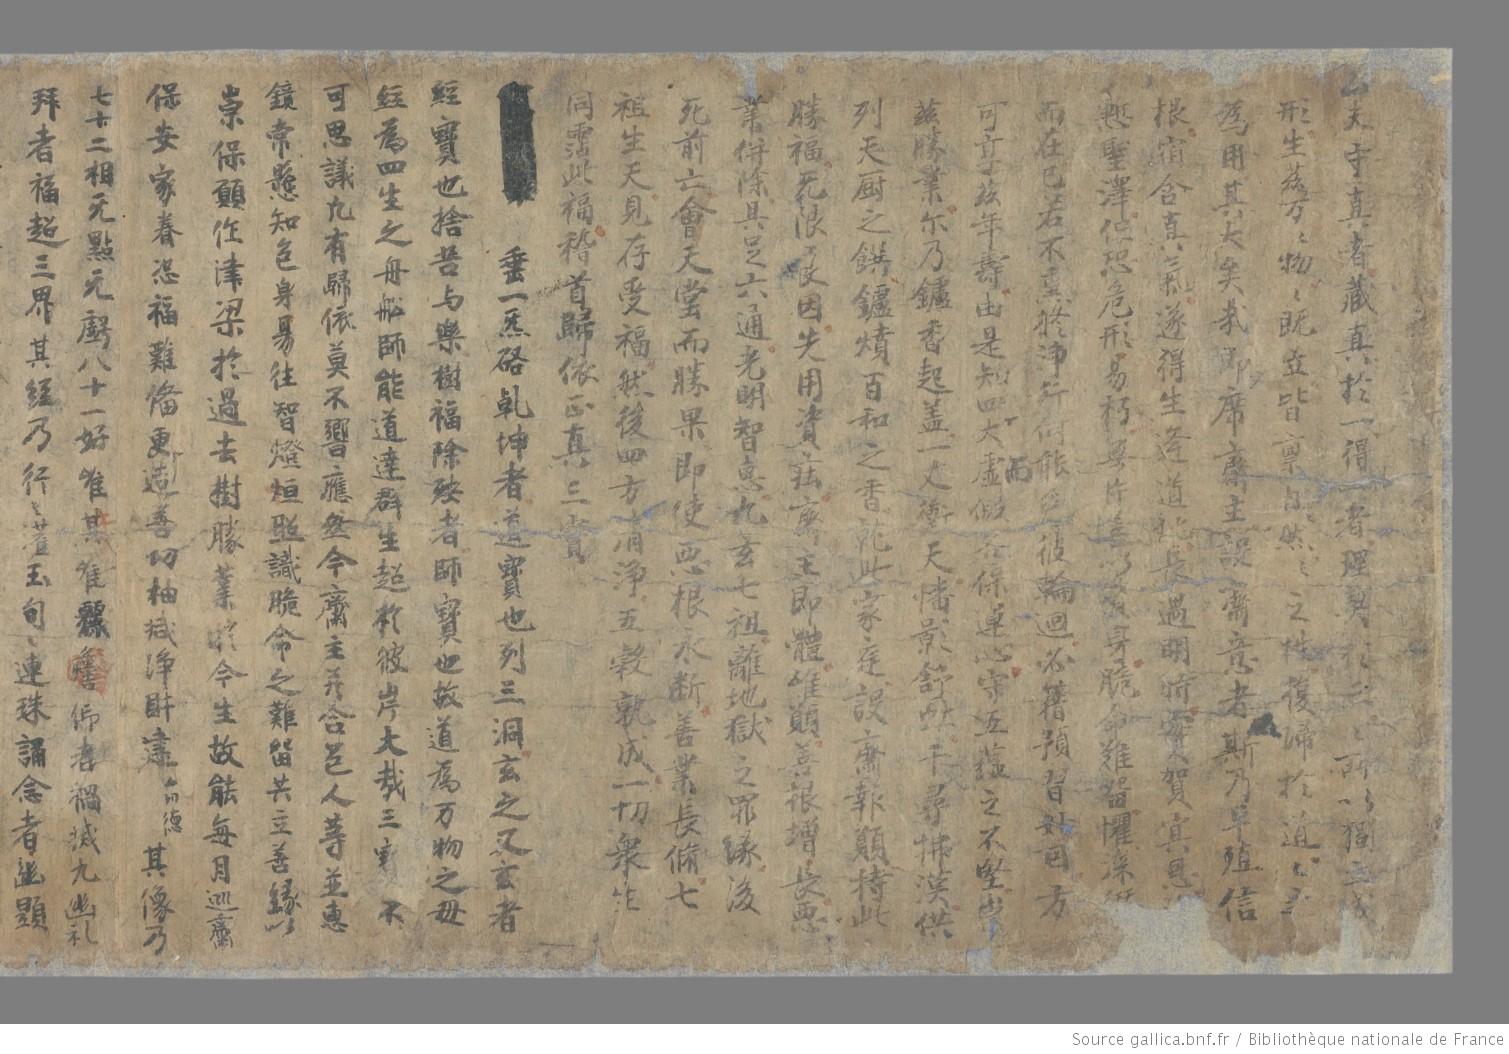 夫守真者藏真於一得一者理契於三々所以獨立成
形生萬々物々既立皆稟自然々之性復歸於道々
為用其大矣哉即席齋主設齋意者斯乃早殖信
根宿含真氣遂得生逢道化長遇明時實賀真恩
慙聖澤但恐危形易朽無片善以資身脆命難留懼深
而在己若不重修淨行何能 彼輪迴必藉預習妙因方
可 茲年壽由是知四大虛假而 保卓心守五蘊之不堅崇
茲勝業尔乃鑪香起盖一丈衝天幡影舒 千尋怫漢供
列天厨之饌鑪燌百和之香 此家庭設齋報願持此
勝福无限 因先用資 齋主即體唯願善根增長惡
業併除具足六通光明智惠九玄七祖離地獄之罪緣後
死前亡會天堂而勝果即使惡根永斷善業長脩七
祖生天見存受福然後四方清淨五穀熟成一切衆生
同霑此福稽首歸依正真三寶
垂一炁硌乹坤者道寶也列三洞玄之又玄者
經寶也捨苦与樂樹福除殃者師寶也故道為万物之母
經為四生之舟船師能道達群生超於彼岸大哉三寶不
可思議九有歸依莫不響應然今齋主 合邑人等並惠
鏡常懸知色身易往智燈恒照識脆命之難留共立善緣以
崇保願作津梁於過去樹勝業於今生故能每月巡齋
保安家眷恐福難俻更造善功抽減淨財造 其像乃
七十二相无點无虧八十一好唯其唯麗瞻仰者禍滅九幽礼
拜者福超三界其經乃行々 玉句々連珠誦念者幽顯
Source gallica.bnf.fr / Bibliothèque nationale de France